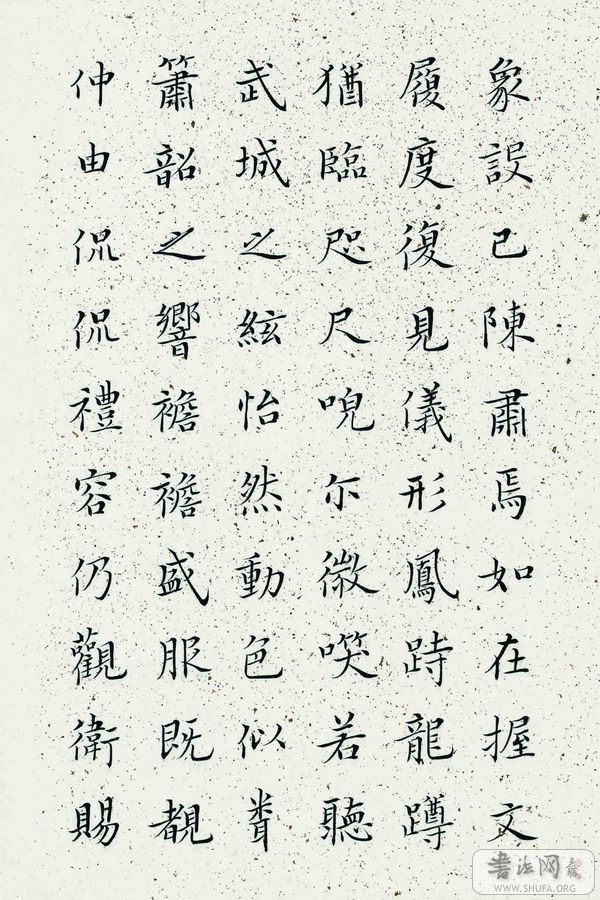 象設已陳肅焉如在握文
履度復見儀形鳳跱龍蹲
猶臨咫尺唲尒微𠸄若聽
武城之絃怡然動色似聞
簫韶之響襜襜盛服既覩
仲由侃侃禮容仍觀衛賜
書法网
WWW.SHUFA.ORG